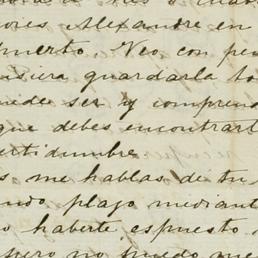 ores Alexandre en
muerto. Veo con pen
isiera guardarla to
uede ser y comprend
que debes encontrart
ertidumbre
s me hablas de tu
ndo plazo mediant
o haberte espuesto
pero no puedo me